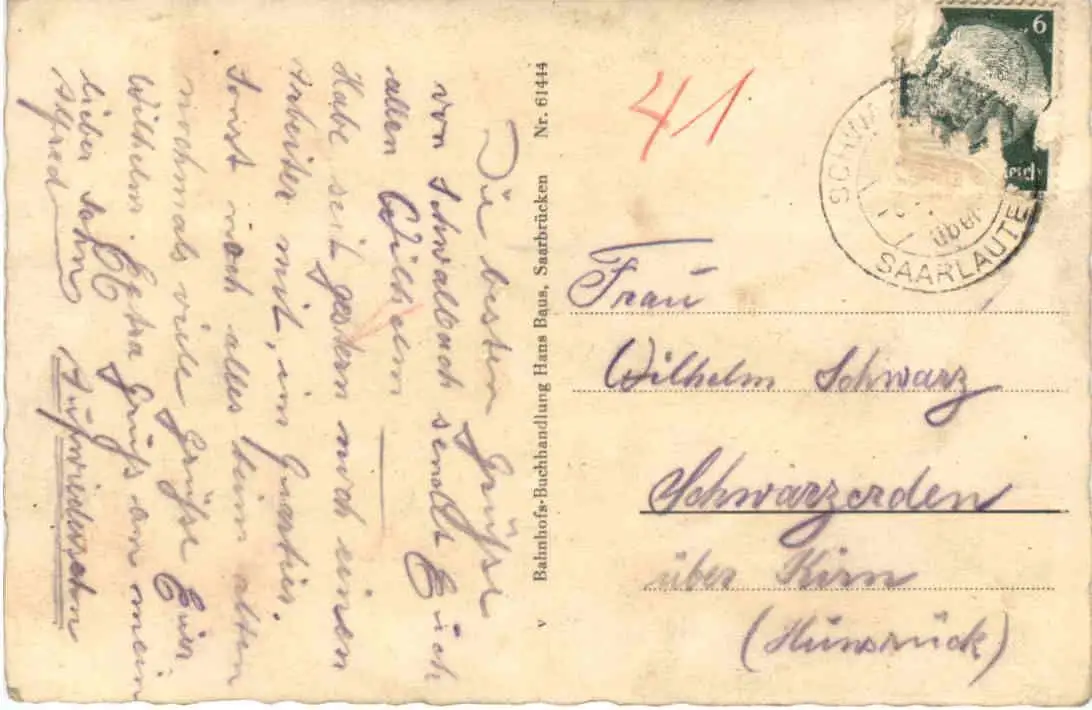 Die besten Grüße
von Schwalbach sendet Euch
allen Wilhelm
Habe seit gestern noch einen
Arbeiter mit, im Quartier.
Sonst noch alles beim alten
nochmals viele Grüße Euer
Wilhelm. Extra Gruß an mein
lieber Sohn
Alfred
Aufwiedersehn
Bahnhofs-Buchhandlung Hans Baus, Saarbrücken Nr. 61444
v
41
6
reich
SAARLAUTE
Frau
Wilhelm Schwarz
Schwarzerden
über Kirn
(Hunsrück)